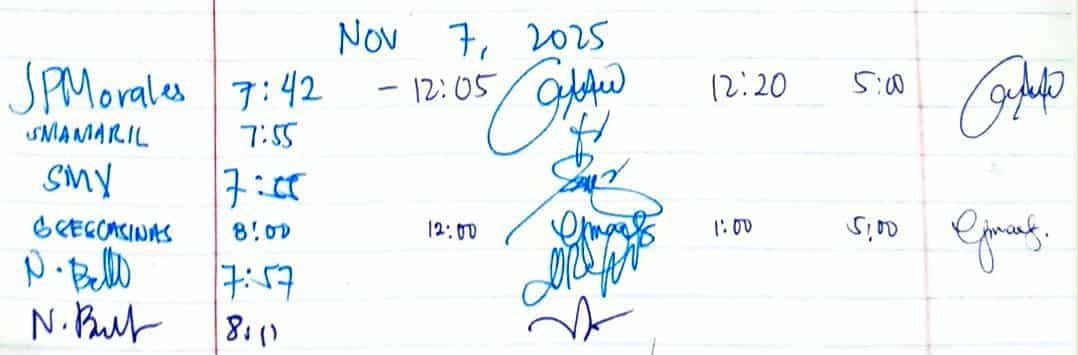 Nov 7, 2025
JPMorales 7:42 - 12:05 12:20 5:00
SMAMARIL 7:55
SMY 7:55
8:00 12:00 1:00 5:00
N. Bello 7:57
N. 8:11